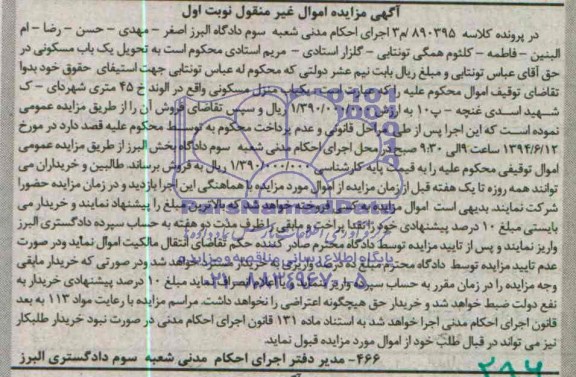 آگهی مزایده اموال غیر منقول نوبت اول
در پرونده کلاسه ۸۹۰۳۹۵ /م۳ اجرای احکام مدنی شعبه سوم دادگاه البرز اصغر - مهدی - حسن - رضا - ام
البنین - فاطمه - کلثوم همگی تونتابی - گلزار استادی - مریم استادی محکوم است به تحویل یک باب مسکونی در
حق آقای عباس تونتابی و مبلغ ریال بابت نیم عشر دولتی که محکوم له عباس تونتابی جهت استیفای حقوق خود بدوا
تقاضای توقیف اموال محکوم علیه را که عبارت است یکباب منزل مسکونی واقع در الوند خ ۴۵ متری شهردای - ک
شهید اسدی غنچه - پ۱۰ به ارزش ۱/۳۹۰/۰۰۰/۰۰۰ ریال و سپس تقاضای فروش آن را از طریق مزایده عمومی
نموده است که این اجرا پس از طی مراحل قانونی و عدم پرداخت محکوم به توسط محکوم علیه قصد دارد در مورخ
۱۳۹۴/۶/۱۲ ساعت ۹الی ۹:۳۰ صبح در محل اجرای احکام مدنی شعبه سوم دادگاه بخش البرز از طریق مزایده عمومی
اموال توقیفی محکوم علیه را به قیمت پایه کارشناسی ۱/۳۹۰/۰۰۰/۰۰۰ ریال به فروش برساند. طالبین و خریداران می
توانند همه روزه تا یک هفته قبل از زمان مزایده از اموال مورد مزایده با هماهنگی این اجرا بازدید و در زمان مزایده حضورا
شرکت نمایند. بدیهی است اموال مزایده به کسی فروخته خواهد شد که بالاترین مبلغ را پیشنهاد نمایند و خریدار می
بایستی مبلغ ۱۰ درصد پیشنهادی خود را نقدا پرداخت و مابقی را ظرف مدت دو هفته به حساب سپرده دادگستری البرز
واریز نمایند و پس از تایید مزایده توسط دادگاه محترم صادر کننده حکم تقاضای انتقال مالکیت اموال نماید ودر صورت
عدم تایید مزایده توسط دادگاه محترم مبلغ ده درصد واریزی به خریدار مسترد خواهد شد ودر صورتی که خریدار مابقی
وجه مزایده را در زمان مقرر به حساب سپرده واریز ننماید و یا اعلام انصراف نماید مبلغ ۱۰ درصد پیشنهادی خریدار به
نفع دولت ضبط خواهد شد و خریدار حق هیچگونه اعتراضی را نخواهد داشت. مراسم مزایده با رعایت مواد ۱۱۳ به بعد
قانون اجرای احکام مدنی اجرا خواهد شد به استناد ماده ۱۳۱ قانون اجرای احکام مدنی در صورت نبود خریدار طلبکار
نیز می تواند در قبال طلب خود از اموال مورد مزایده قبول نماید.
۴۶۶- مدیر دفتر اجرای احکام مدنی شعبه سوم دادگستری البرز